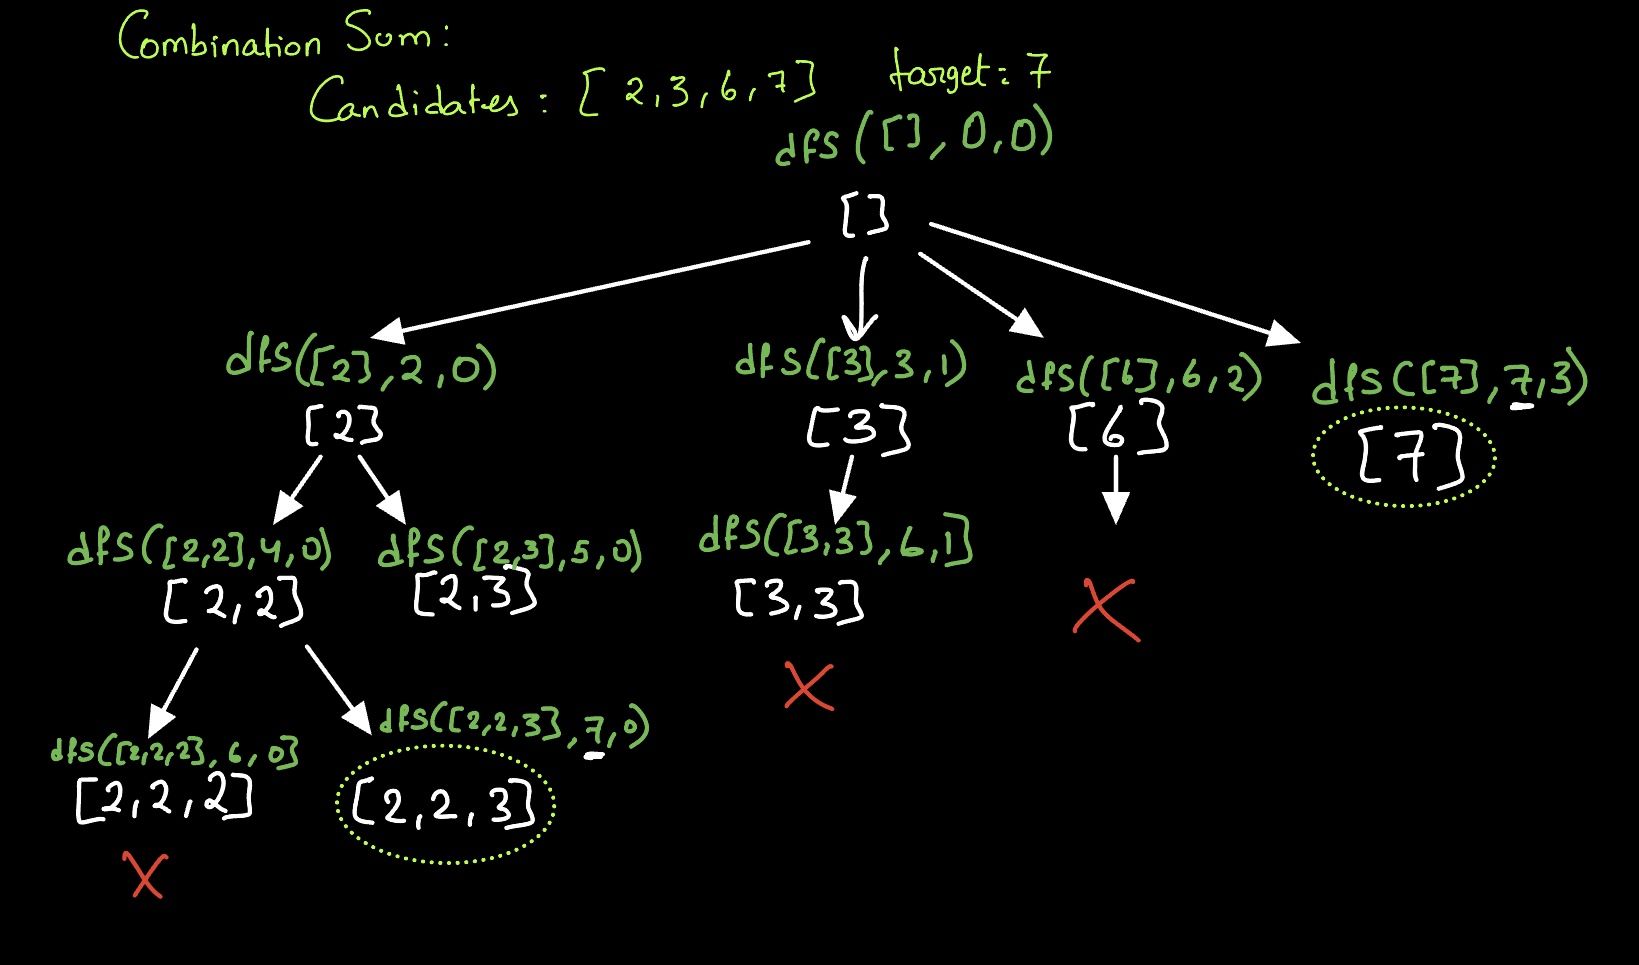 Combination Sum:
Candidates: [2,3,6,7] target: 7
dfs([], 0,0)
[]
dfs([2],2,0) dfs([3],3,1) dfs([6],6,2) dfs([7],7,3)
[2] [3] [6] [7]
dfs([2,2],4,0) dfs([2,3],5,0) dfs([3,3],6,1]
[2,2] [2,3] [3,3]
dfs([2,2,2],6,0] dfs([2,2,3],7,0)
[2,2,2] [2,2,3]